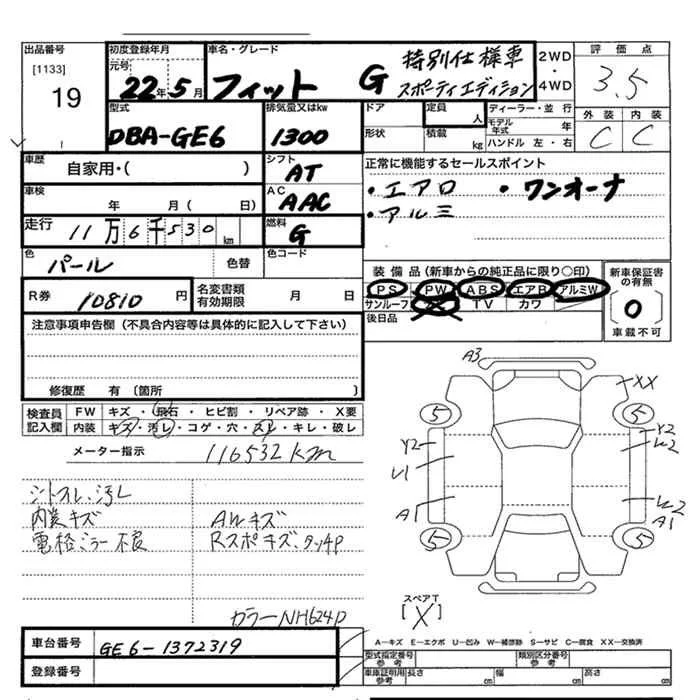 出品番号
[1133]
19
初度登録年月
元号
22年5月
車名・グレード
フィット G 特別仕様車
スポーティエディション
2WD
・
4WD
評価点
3.5
型式
DBA-GE6
排気量又はkw
1300
ドア
形状
定員
人
積載
kg
ディーラー・並行
モデル年式 年
ハンドル 左・右
外装 内装
C C
車歴
自家用・( )
シフト
AT
車検
年 月( 日)
AC
AAC
走行
11万6千530km
燃料
G
正常に機能するセールスポイント
・エアロ ・ワンオーナ
・アルミ
色
パール
色替
色コード
R券
10810円
名変書類
有効期限
月 日
装備品(新車からの純正品に限り○印)
PS PW ABS エアB アルミW
サンルーフ TV カワ
後日品
新車保証書の有無
0
車載不可
注意事項申告欄(不具合内容等は具体的に記入して下さい)
修復歴 有〔箇所 〕
検査員記入欄
FW キズ・飛石・ヒビ割・リペア跡・X要
内装 キズ・汚レ・コゲ・穴・スレ・キレ・破レ
メーター指示 116532km
シートスレ、汚レ
内装キズ
電格ミラー不良
AWキズ
RスポキズタッチP
カラーNH624P
A3
XX
5
5
Y2
U1
A1
Y2
W2
W2
A1
5
5
スペアT
[X]
A−キズ E−エクボ U−凹み W−補修跡 S−サビ C−腐食 XX−交換済
車台番号
GE6-1372319
登録番号
型式指定番号
参考
類別区分番号
参考
車庫証明用
参考
長さ cm
幅 cm
高さ cm